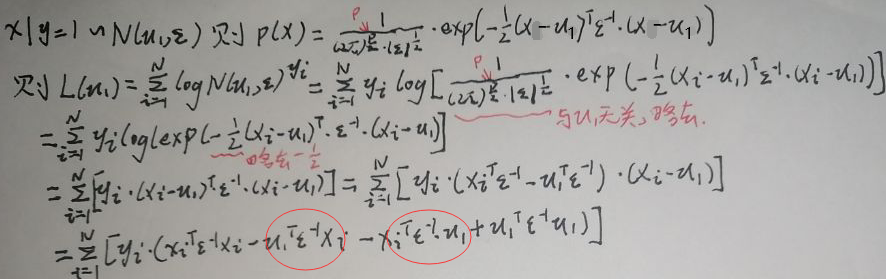 x|y=1 ∽ N(u₁,ε) 则 p(x) = 1/((2π)^(p/2)·|ε|^(1/2)) ·exp[-1/2(x-u₁)ᵀε⁻¹·(x-u₁)]
P
则 L(u₁) = Σ_{i=1}^{N} log N(u₁,ε)^{yi} = Σ_{i=1}^{N} yi log[1/((2π)^(p/2)·|ε|^(1/2)) ·exp(-1/2(xi-u₁)ᵀε⁻¹·(xi-u₁))]
P
与u₁无关,略去.
= Σ_{i=1}^{N} yi log[exp(-1/2(xi-u₁)ᵀ·ε⁻¹·(xi-u₁)]
略去-1/2
= Σ_{i=1}^{N} [yi·(xi-u₁)ᵀε⁻¹·(xi-u₁)] = Σ_{i=1}^{N} [yi·(xiᵀε⁻¹-u₁ᵀε⁻¹)·(xi-u₁)]
= Σ_{i=1}^{N} [yi·(xiᵀε⁻¹xi-u₁ᵀε⁻¹xi-xiᵀε⁻¹·u₁+u₁ᵀε⁻¹u₁)]